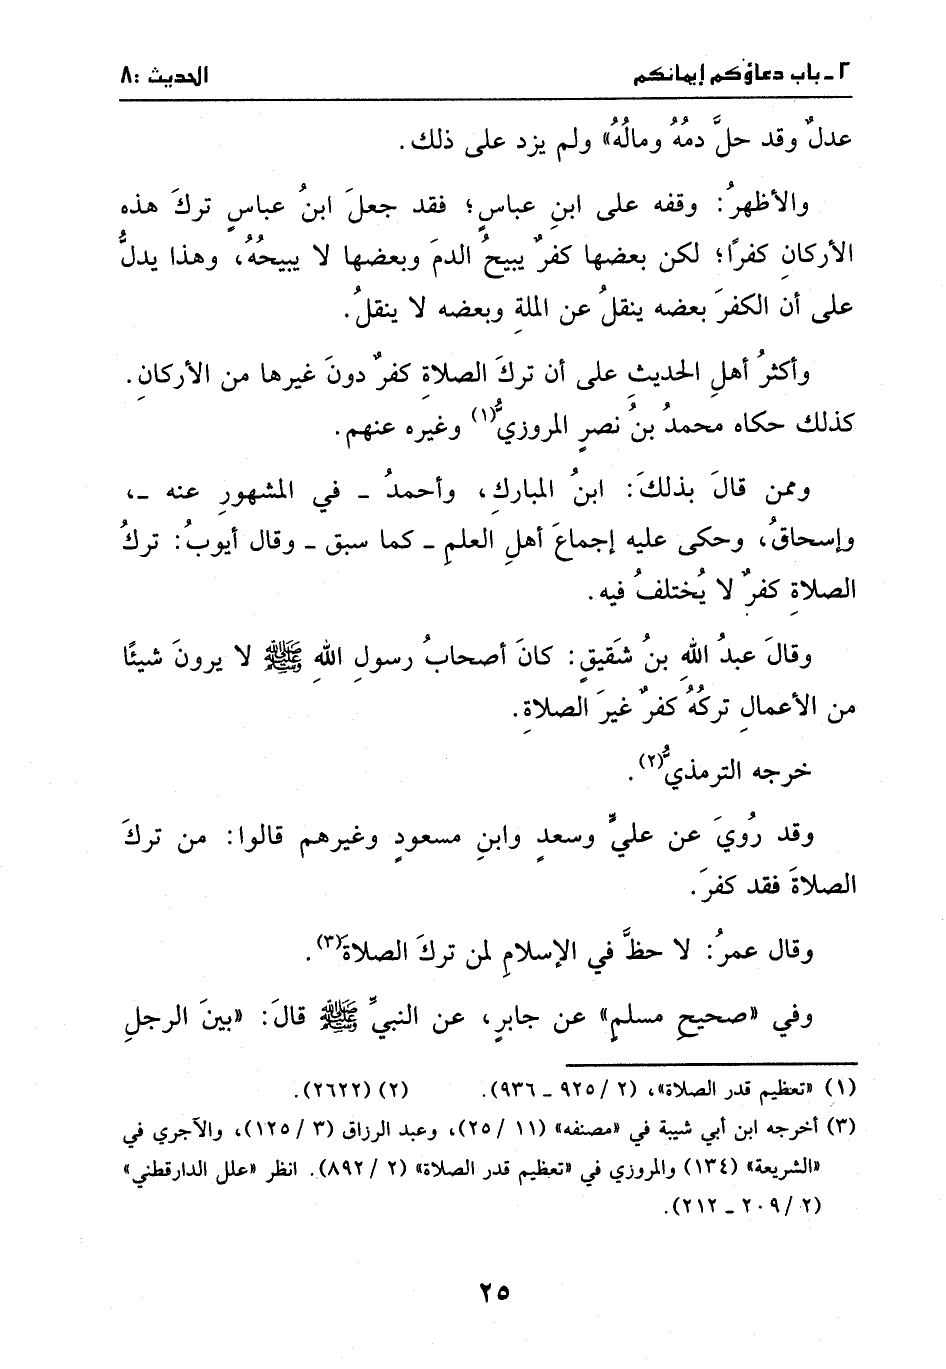 ٢ ـ باب دعاؤكم إيمانكم الحديث : ٨
عدلٌ وقد حلَّ دمُهُ ومالُهُ» ولم يزد على ذلك .
والأظهرُ : وقفه على ابنِ عباسٍ؛ فقد جعلَ ابنُ عباسٍ تركَ هذه
الأركانِ كفرًا؛ لكن بعضها كفرٌ يبيحُ الدمَ وبعضها لا يبيحُهُ، وهذا يدلُّ
على أن الكفرَ بعضه ينقلُ عن الملةِ وبعضه لا ينقلُ.
وأكثرُ أهلِ الحديثِ على أن تركَ الصلاةِ كفرٌ دونَ غيرها من الأركانِ.
كذلك حكاه محمدُ بنُ نصرٍ المروزيُّ(١) وغيره عنهم.
وممن قالَ بذلكَ : ابنُ المباركِ، وأحمدُ ـ في المشهورِ عنه ـ،
وإسحاقُ، وحكى عليه إجماعَ أهلِ العلمِ ـ كما سبق ـ وقال أيوبُ : تركُ
الصلاةِ كفرٌ لا يُختلفُ فيه.
وقالَ عبدُ اللهِ بنُ شَقيقٍ : كانَ أصحابُ رسولِ اللهِ ﷺ لا يرونَ شيئًا
من الأعمالِ تركُهُ كفرٌ غيرَ الصلاةِ.
خرجه الترمذيُّ(٢).
وقد رُويَ عن عليٍّ وسعدٍ وابنِ مسعودٍ وغيرهم قالوا : من تركَ
الصلاةَ فقد كفرَ.
وقال عمرُ : لا حظَّ في الإسلامِ لمن تركَ الصلاةَ(٣).
وفي «صحيحِ مسلمٍ» عن جابرٍ، عن النبيِّ ﷺ قالَ : «بينَ الرجلِ
(١) «تعظيم قدر الصلاة»، (٢ / ٩٢٥ ـ ٩٣٦). (٢) (٢٦٢٢).
(٣) أخرجه ابن أبي شيبة في «مصنفه» (١١ / ٢٥)، وعبد الرزاق (٣ / ١٢٥)، والآجري في
«الشريعة» (١٣٤) والمروزي في «تعظيم قدر الصلاة» (٢ / ٨٩٢). انظر «علل الدارقطني»
(٢ / ٢٠٩ ـ ٢١٢).
٢٥